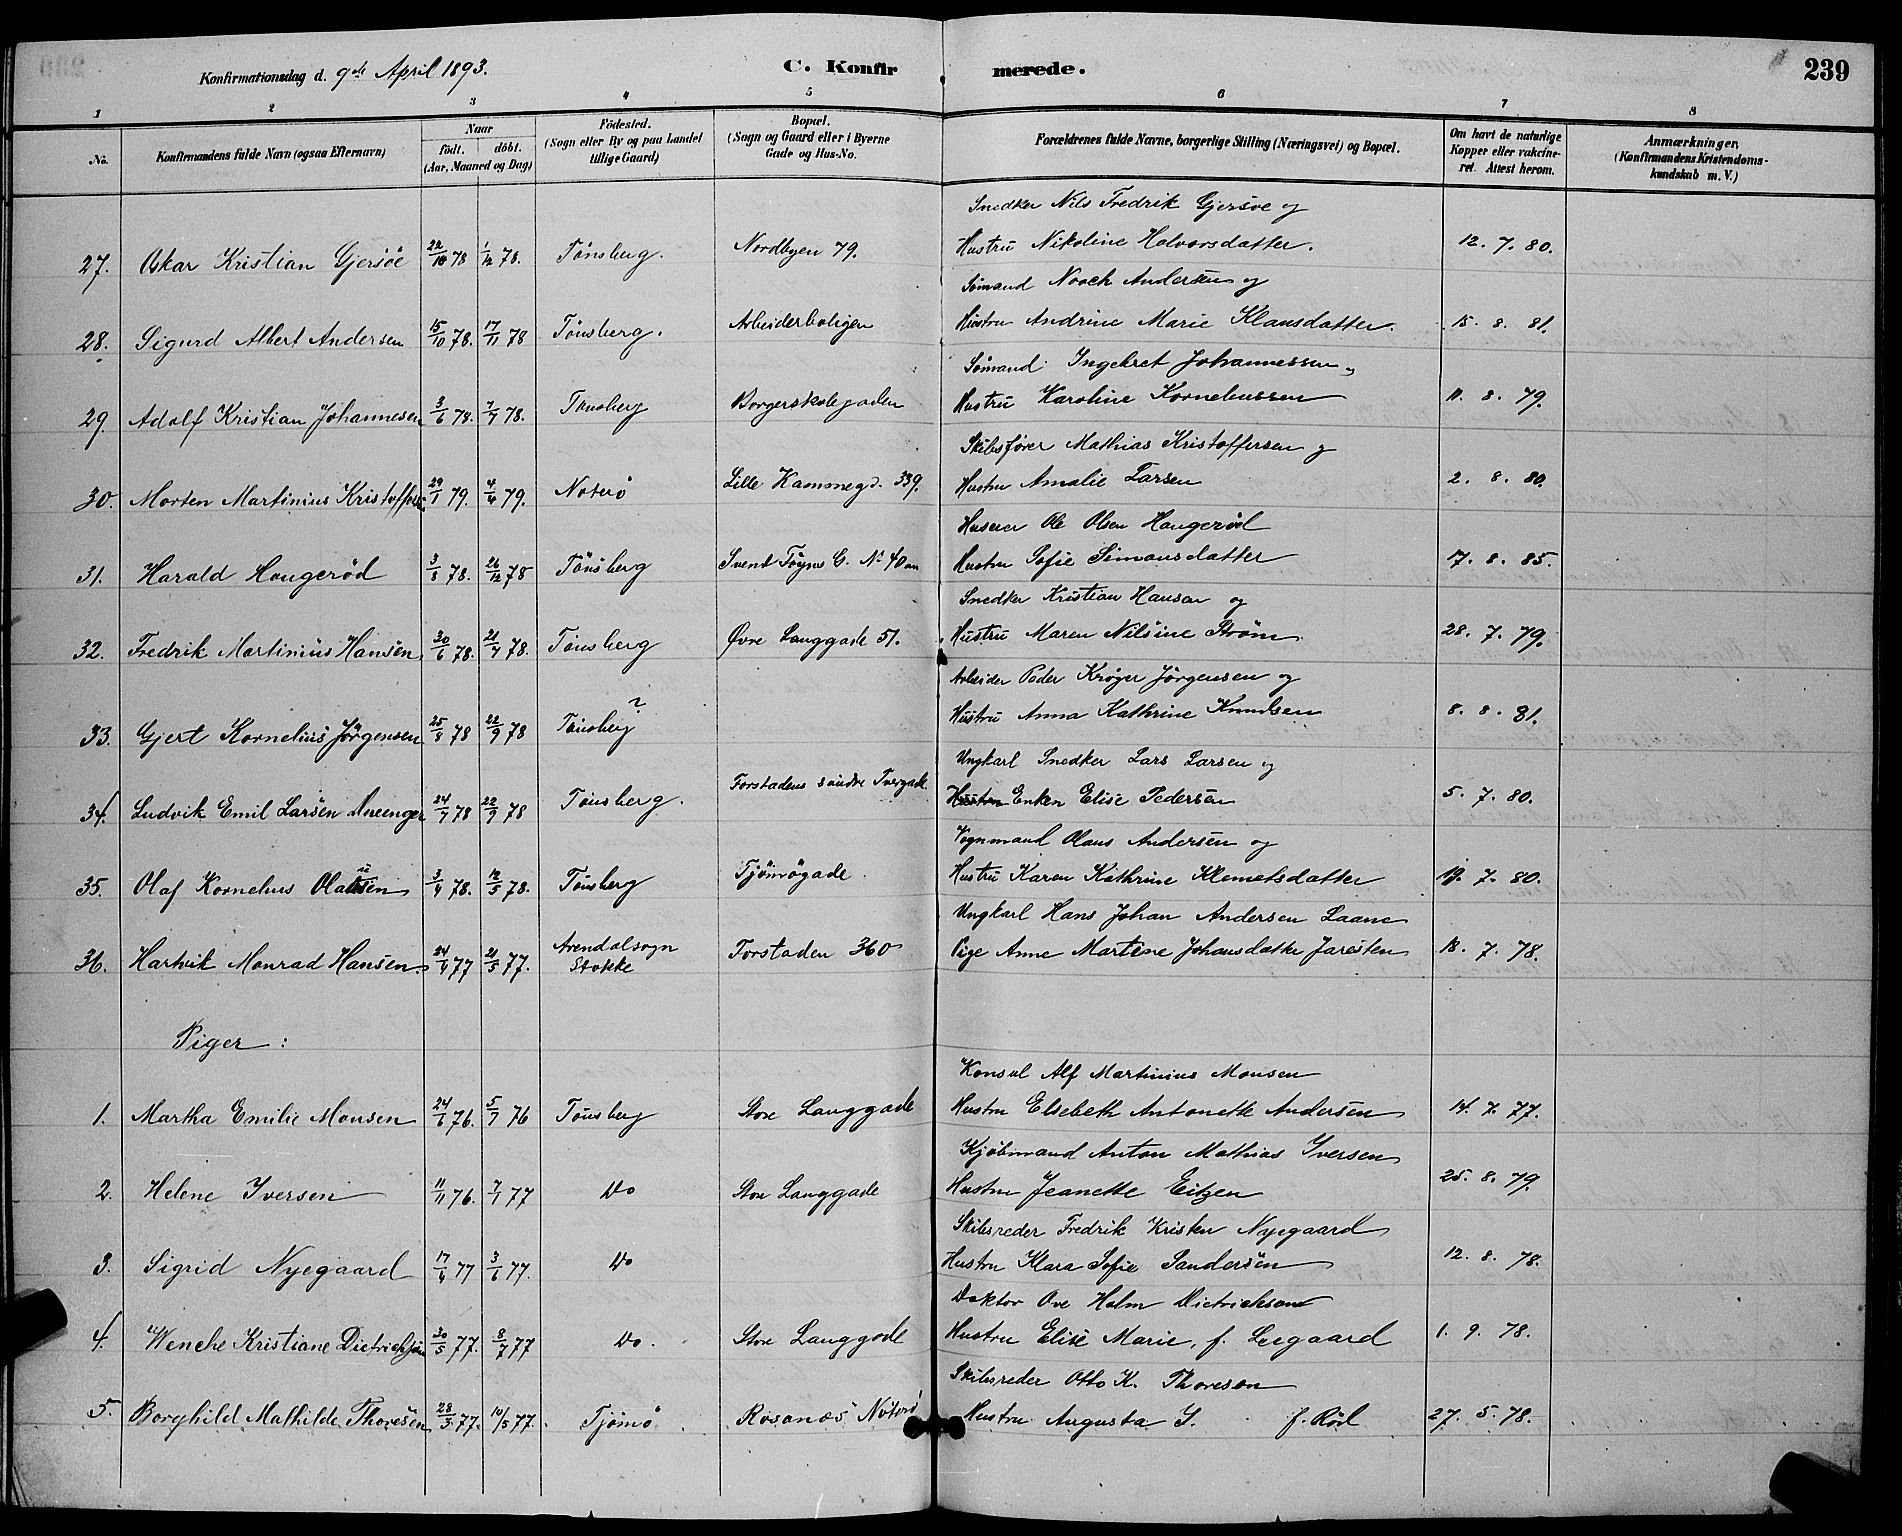 Konfirmationsdag d. 9de April 1893. C. Konfirmerede. 239
1 2 3 4 5 6 7 8
No. Konfirmandens fulde Navn (ogsaa Efternavn) Naar født. døbt. (Aar, Maaned og Dag) Fødested. (Sogn eller By og paa Landet tillige Gaard) Bopæl. (Sogn og Gaard eller i Byerne Gade og Hus-No. Forældrenes fulde Navne, borgerlige Stilling (Næringsvei) og Bopæl. Om havt de naturlige Kopper eller vakcineret. Attest herom. Anmærkninger. (Konfirmandens Kristendomskundskab m. V.)
Snedker Nils Fredrik Gjersøe og
27. Oskar Kristian Gjersöe 22/10 78 1/12 78. Tönsberg. Nordbyen 79. Hustru Nikoline Halvorsdatter. 12. 7. 80.
Sömand Noach Andersen og
28. Sigurd Albert Andersen 15/10 78. 17/11 78 Tönsberg. Arbeiderboligen Hustru Andrine Marie Klausdatter. 15. 8. 81.
Sömand Ingebret Johannessen
29. Adolf Kristian Johannesen 3/6 78. 7/7 78. Tönsberg Borgerskolegaden Hustru Karoline Korneliussen 11. 8. 79.
Skibsfører Mathias Kristoffersen og
30. Morten Martinius Kristoffers. 29/1 79. 4/4 79. Noterö Lille Kammegd. 339. Hustru Amalie Larsen 2. 8. 80.
Huseier Ole Olsen Haugeröd
31. Harald Haugeröd 3/8 78. 26/12 78 Tönsberg Svend Föyns G. No 40 Hustru Sofie Simonsdatter 17. 8. 85.
Snedker Kristian Hansen og
32. Fredrik Martinius Hansen 30/6 78. 21/7 78. Tönsberg Øvre Langgade 51. Hustru Maren Nilsine Ström 28. 7. 79.
Arbeider Peder Kröger Jörgensen og
33. Gjert Kornelius Jörgensen 25/8 78 22/9 78 Tönsberg ? Hustru Anna Kathrine Knudsen 8. 8. 81.
Ungkarl Snedker Lars Larsen og
34. Ludvik Emil Larsen 24/7 78 22/9 78 Tönsberg. Forstadens söndre Tvergade Enken Elise Pedersen 5. 7. 80.
Vognmand Olaus Andersen og
35. Olaf Kornelius Olausen 3/4 78. 12/5 78. Tönsberg Tjömögade. Hustru Karen Kathrine Klemetsdatter 19. 7. 80.
Ungkarl Hans Johan Andersen Laane
36. Hartvik Monrad Hansen 24/4 77 21/5 77. Arendalsogn Stokke Forstaden 360 Pige Anne Martine Johansdatter Jaresten 18. 7. 78.
Piger :
Konsul Alf Martinius Monsen
1. Martha Emilie Monsen 24/6 76. 5/7 76 Tönsberg Store Langgade Hustru Elsebeth Antonette Andersen 14. 7. 77.
Kjöbmand Anton Mathias Iversen
2. Helene Iversen 11/11 76. 7/1 77 Do Store Langgade Hustru Jeanette Eitzen 25. 8. 79.
Skibsreder Fredrik Kristen Nyegaard
3. Sigrid Nyegaard 17/4 77 3/6 77. Do Hustru Klara Sofie Sandersen 12. 8. 78.
Doktor Ove Holm Dietrichson
4. Wenche Kristiane Dietrichson 30/5 77. 8/7 77 Do. Store Langgade Hustru Elise Marie, f. Leegaard 1. 9. 78.
Skibsreder Otto K. Thoresen
5. Borghild Mathilde Thoresen 28/3 77. 10/5 77. Tjömö. Rosanæs Nöterö Hustru Augusta S. f. Röd 27. 5. 78.